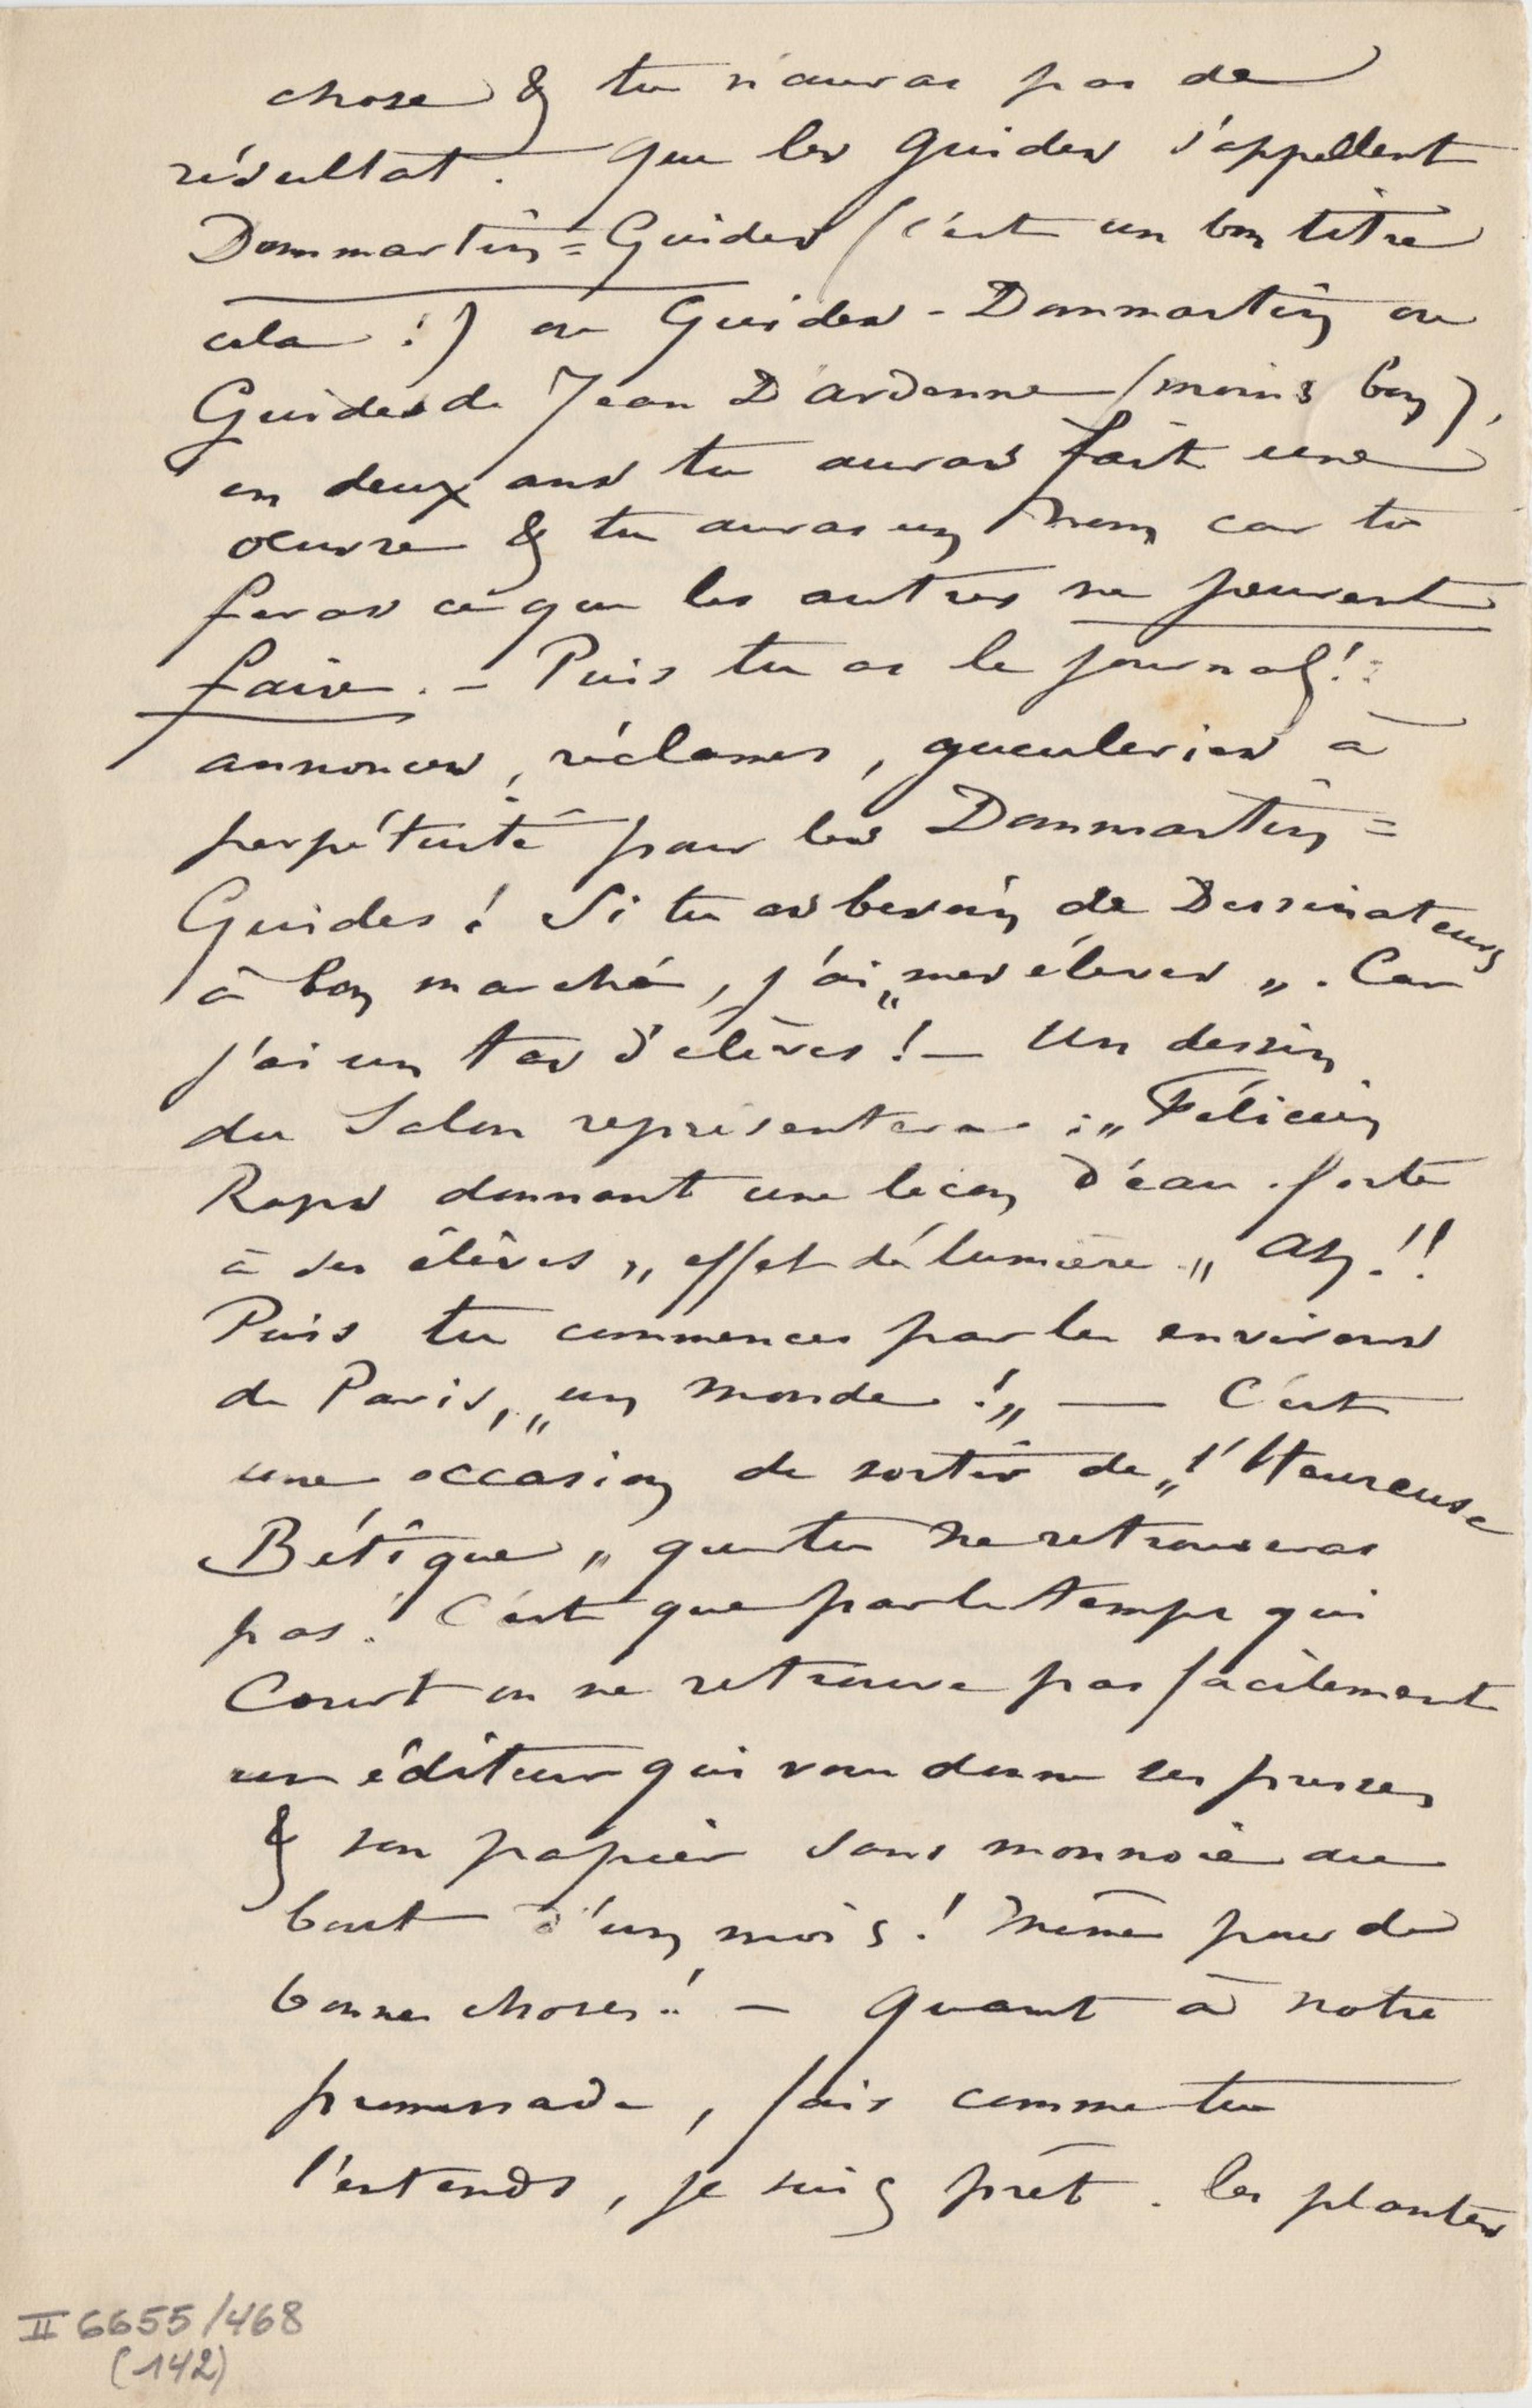 chose & tu n'auras pas de
résultat. Que les guides s'appellent
Dommartin=Guides (c'est un bon titre
cela !) ou Guides-Dommartin ou
Guides de Jean D'Ardenne (moins bon),
en deux ans tu auras fait une
oeuvre & tu auras un nom car tu
feras ce que les autres ne peuvent
faire. – Puis tu as le journal !:
annonces, réclames, gueuleries à
perpétuité pour les Dommartin=
Guides ! Si tu as besoin de Dessinateurs
à bon marché, j'ai „mes élèves„. Car
j'ai un tas d'élèves ! – Un dessin
du Salon représentera : „Félicien
Rops donnant une leçon d'eau-forte
à ses élèves„ „effet de lumière„ Ah !!
Puis tu commences par les environs
de Paris, „un monde !„ — C'est
une occasion de sortir de „l'Heureuse
Bétique„ que tu ne retrouveras
pas. C'est que par le temps qui
court on ne retrouve pas facilement
un éditeur qui vous donne ses presses
& son papier sans monnoie au
bout d'un mois ! Même pour de
bonnes choses ! – Quant à notre
promenade, fais comme tu
l'entends, je suis prêt. les plantes
II 6655/468
(142)